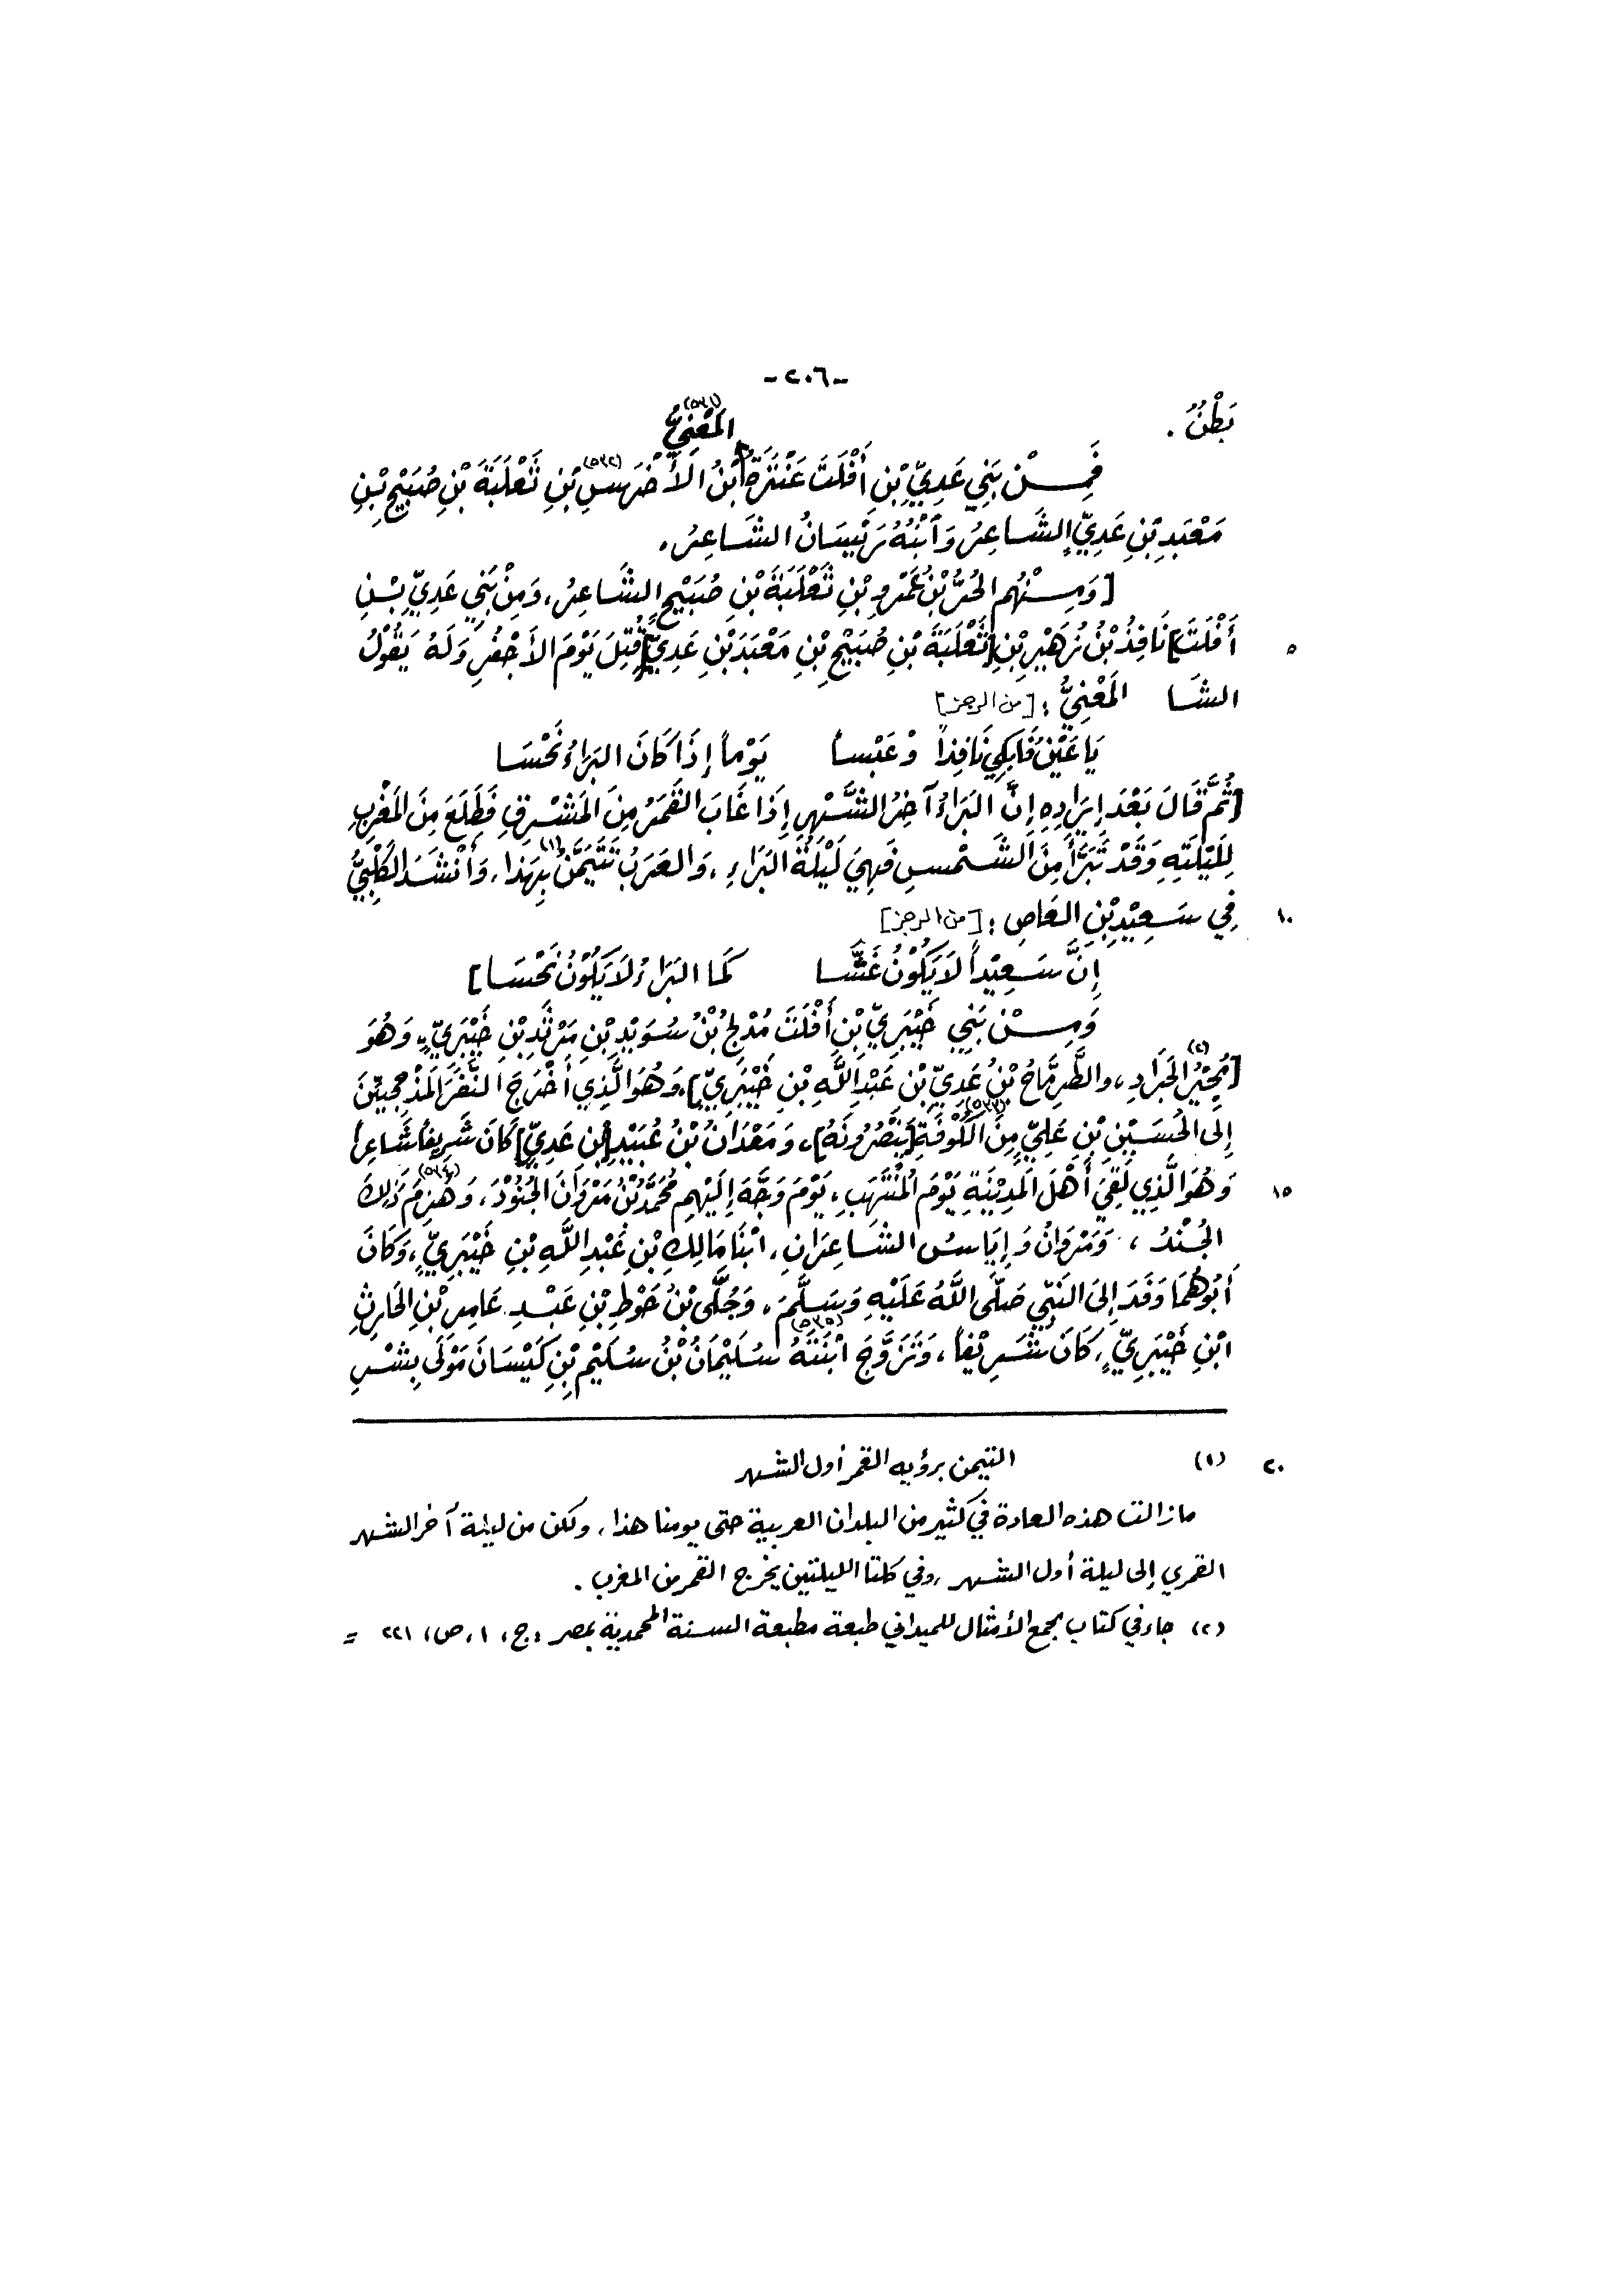 -٢٠٦-
بَطْنٌ .
(٥٣١)
فَمِنْ بَنِي عَدِيِّ بْنِ أَفْلَتَ عَنْتَرَةُ ابْنُ الأَخْرَسِ (٥٣٢) بْنِ ثَعْلَبَةَ بْنِ صُبَيْحِ بْنِ المَعْنِيُّ
مَعْبَدِ بْنِ عَدِيٍّ الشَّاعِرُ وَابْنُهُ الشَّاعِرُ.
[وَمِنْهُم الحُرُّ بْنُ عَمْرِو بْنِ ثَعْلَبَةَ بْنِ صُبَيْحٍ الشَّاعِرُ، وَمِنْ بَنِي عَدِيِّ بْنِ
٥ أَفْلَتَ] نَافِذُ بْنُ زُهَيْرِ بْنِ [ثَعْلَبَةَ بْنِ صُبَيْحِ بْنِ مَعْبَدَ بْنِ عَدِيٍّ] قُتِلَ يَوْمَ الأَجْفُرِ وَلَهُ يَقُوْلُ
الشَا المَعْنِيُّ : [من الرجز]
يَا عَيْنُ فَابْكِي نَافِذاً وْعَبْسا يَوْماً إِذَا كَانَ البَرَاءُ نَحْسَا
[ثُمَّ قَالَ بَعْدَ إِيرَادِهِ إِنَّ البَرَاءُ آخِرُ الشَّهْرِ إِذَا غَابَ القَمَرُ مِنَ المَشْرِقِ فَطَلَعَ مِنَ المَغْرِبِ
لِلَيْلَتِهِ وَقَدْ تَبَرَّأَ مِنَ الشَمْسِ فَهِيَ لَيْلَةُ البَرَاءِ ، وَالعَرَبُ تَتَيَمَّنُ (١) بِهَذا، وَأَنْشَدَ الكَلْبِيُّ
١٠ فِي سَعِيْدِ بْنِ العَاصِ : [من الرجز]
إِنَّ سَعِيْداً لَا يَكُوْنُ غَسَّا كَما البَرَاءُ لَا يَكُوْنُ نَحْسَا]
وَمِنْ بَنِي خَيْبَرِيِّ بْنِ أَفْلَتَ مُدْلِجُ بْنُ سُوَيْدِ بْنِ مَرْثَدِ بْنِ خَيْبَرِيٍّ، وَهُوَ
[مُجِيْرُ (٢) الجَرَادِ، والطِّرِمَّاحُ بْنُ عَدِيِّ بْنِ عَبْدِ اللَّهِ بْنِ خَيْبَرِيٍّ]، وَهُوَ الَّذِي أَخْرَجَ النَّفَرَ المَذْحِجِيِّيْنَ
إِلى الحُسَيْنِ بْنِ عَلِيٍّ مِنَ الكُوْفَةِ (٥٣٣) [يَنْصُرُونَهُ]، وَمَعْدَانُ بْنُ عُبَيْدِ [بْنِ عَدِيٍّ] كَانَ شَرِيفاً شَاعِراً
١٥ وَهُوَ الَّذِي لَقِيَ أَهْلَ المَدِيْنَةِ يَوْمَ المُنْتَهَبِ، يَوْمَ وَجَّهَ إِلَيْهِم مُحَمَّدُ بْنُ مَرْوَانَ الجُنُوْدَ، وَهُزِمَ (٥٣٤) ذَلِكَ
الجُنْدُ ، وَمَرْوَانُ وَإِيَاسُ الشَاعِرَانِ، ابْنَا مَالِكِ بْنِ عَبْدِ اللَّهِ بْنِ خَيْبَرِيٍّ، وَكَانَ
أَبُوهُمَا وَفَدَ إِلَى النَبِّي صَلَّى اللَّهُ عَلَيْهِ وَسَلَّمَ، وَجُلَّى بْنُ حَوْطِ بْنِ عَبْدِ عَامِرِ بْنِ الحَارِثِ
ابْنِ خَيْبَرِيٍّ، كَانَ شَرِيْفاً ، وَتَزَوَّجَ ابْنَتَهُ (٥٣٥) سُلَيْمَانُ بْنُ سُلَيْمِ بْنِ كَيْسَانَ مَوْلَى بِشْرِ
٢٠ (١) التيمن برؤيه القمر أول الشهر
مازالت هذه العادة في كثير من البلدان العربية حتى يومنا هذا، ولكن من ليلة آخر الشهر
القمري إلى ليلة أول الشهر ، وفي كلتا الليلتين يخرج القمر من المغرب .
(٢) جاء في كتاب مجمع الأمثال للميداني طبعة مطبعة السنة المحمدية بمصر ، ج، ١، ص، ٢٢١ =